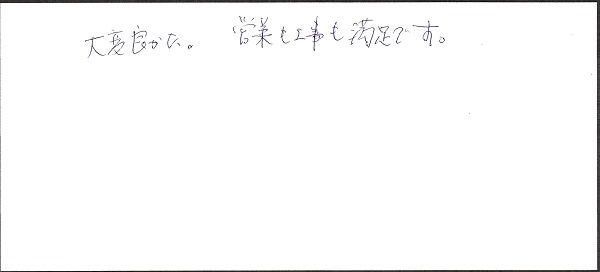 大変良かった。 営業も工事も満足です。